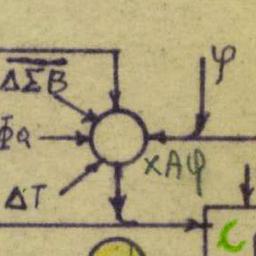 ΔΣB
φ
ΦQ
xAφ
ΔT
C